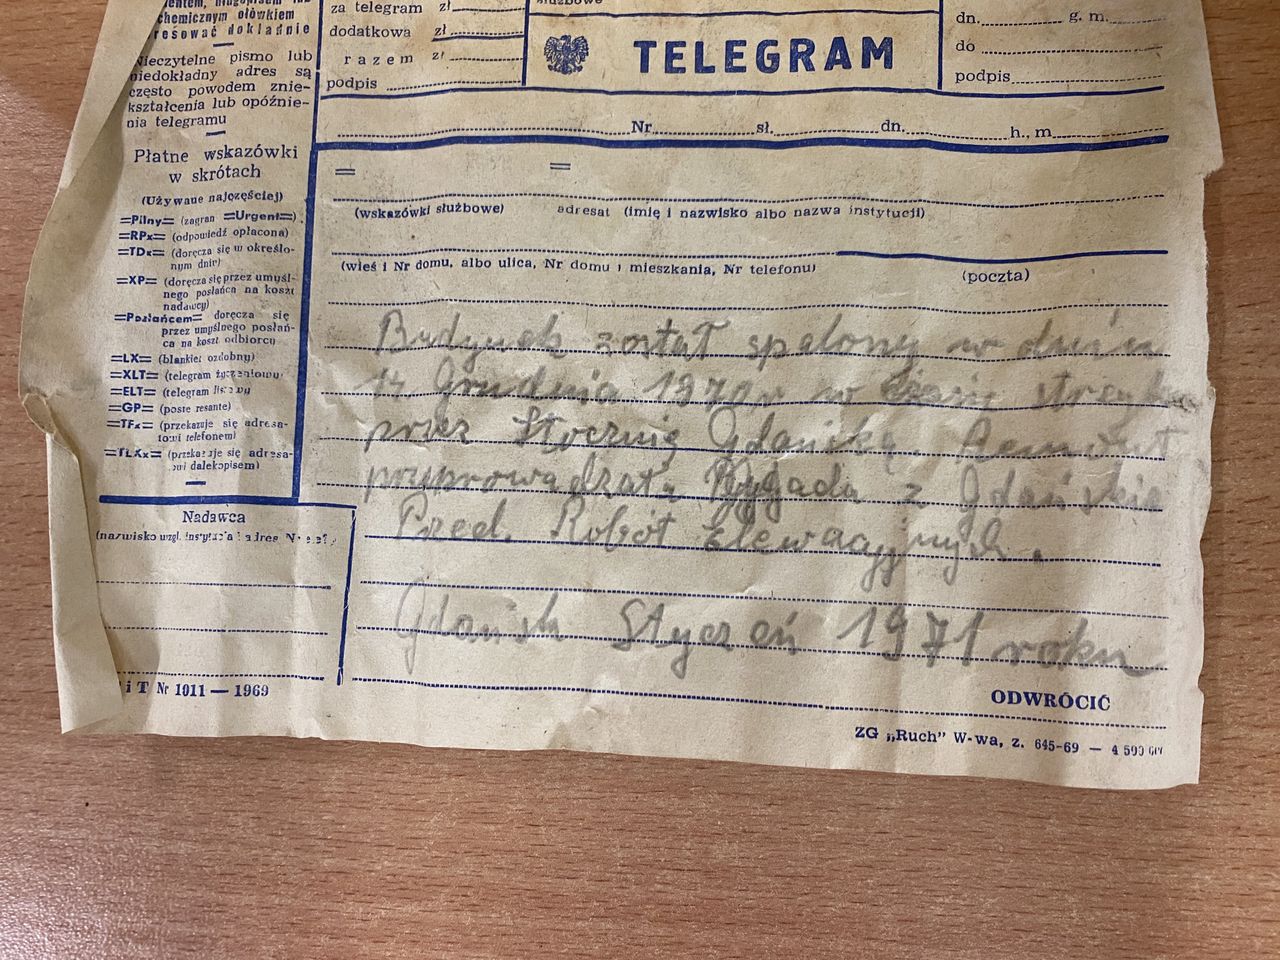 chemicznym ołówkiem
resować dokładnie
Nieczytelne pismo lub
niedokładny adres są
często powodem znie-
kształcenia lub opóźnie-
nia telegramu
Płatne wskazówki
w skrótach
(Używane najczęściej)
=Pilny= (zagran =Urgent=)
=RPx= (odpowiedź opłacona)
=TDx= (doręcza się w określo-
nym dniu)
=XP= (doręcza się przez umyśl-
nego posłańca na koszt
nadawcy)
=Posłańcem= doręcza się
przez umyślnego posłań-
ca na koszt odbiorcy
=LX= (blankiet ozdobny)
=XLT= (telegram życzeniowy)
=ELT= (telegram listowy)
=GP= (poste resante)
=TFx= (przekazuje się adresa-
towi telefonem)
=TLXx= (przekazuje się adresa-
towi dalekopisem)
Nadawca
(nazwisko wzgl. instytucja i adres
iT Nr 1011 — 1969
za telegram zł
dodatkowa zł
razem zł
podpis
służbowe
TELEGRAM
dn. g. m.
do
podpis
Nr sł. dn. h., m.
= =
(wskazówki służbowe) adresat (imię i nazwisko albo nazwa instytucji)
(wieś i Nr domu, albo ulica, Nr domu i mieszkania, Nr telefonu) (poczta)
Budynek został spalony w dniu
14 Grudnia 1970r w czasie strajku
przez Stocznię Gdańską. Remont
przyprowadzała Brygada z Gdańskie
Przed. Robót Elewacyjnych.
Gdańsk Styczeń 1971 roku
ODWRÓCIĆ
ZG „Ruch" W-wa, z. 645-69 — 4 500